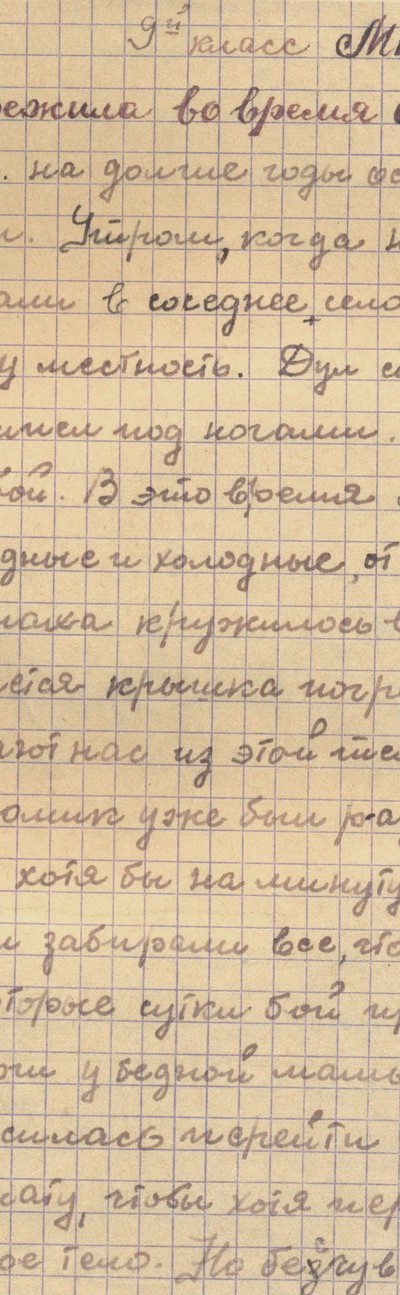 9й класс М
ежила во время
. на долгие годы ос
и. Утром, когда н
ами в соседнее село
у местность. Дул с
лись под ногами.
бой. В это время
дные и холодные, от
паха кружилось в
ется крышка погре
ают нас из этой тем
омик уже был ра
хотя бы на минуту
и забирали все, что
торые сутки бой пр
очи у бедной мамы
силась перейти
лату, чтобы хотя пер
ое тело. Но безчув